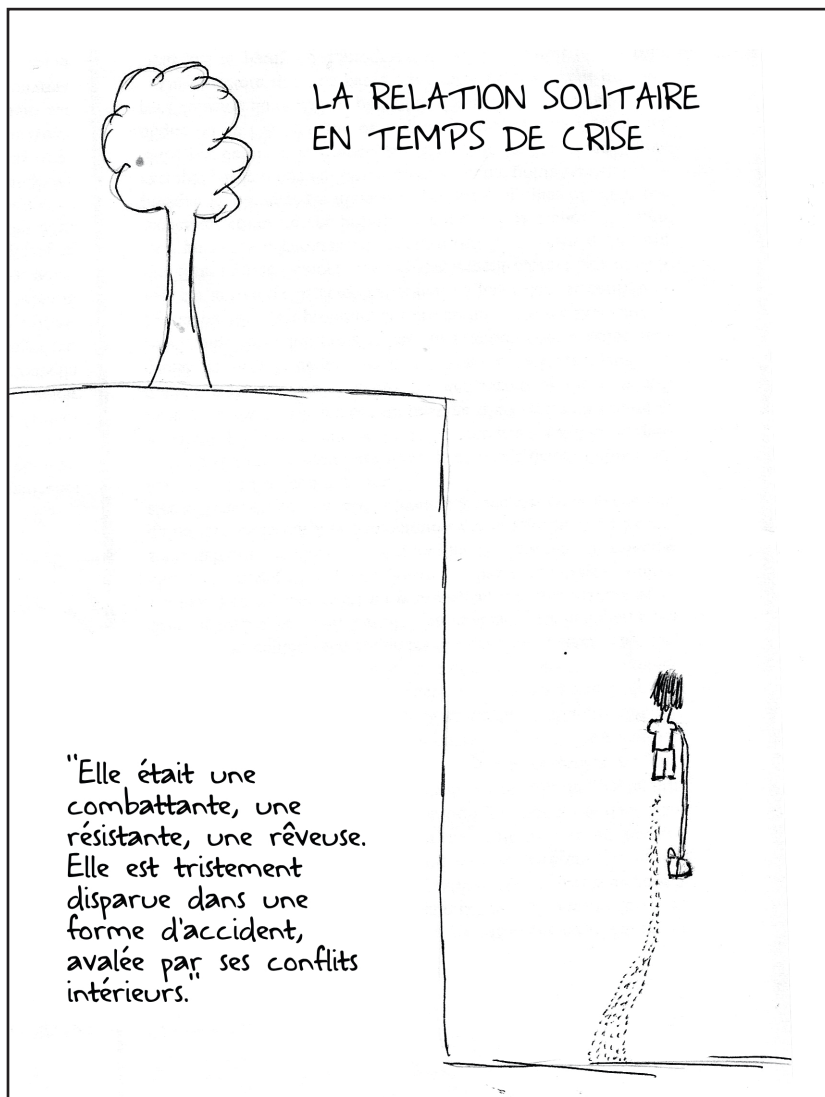 LA RELATION SOLITAIRE
EN TEMPS DE CRISE
"Elle était une
combattante, une
résistante, une rêveuse.
Elle est tristement
disparue dans une
forme d'accident,
avalée par ses conflits
intérieurs."